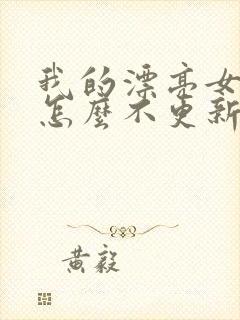 我的漂亮女
怎麼不更新
黄毅